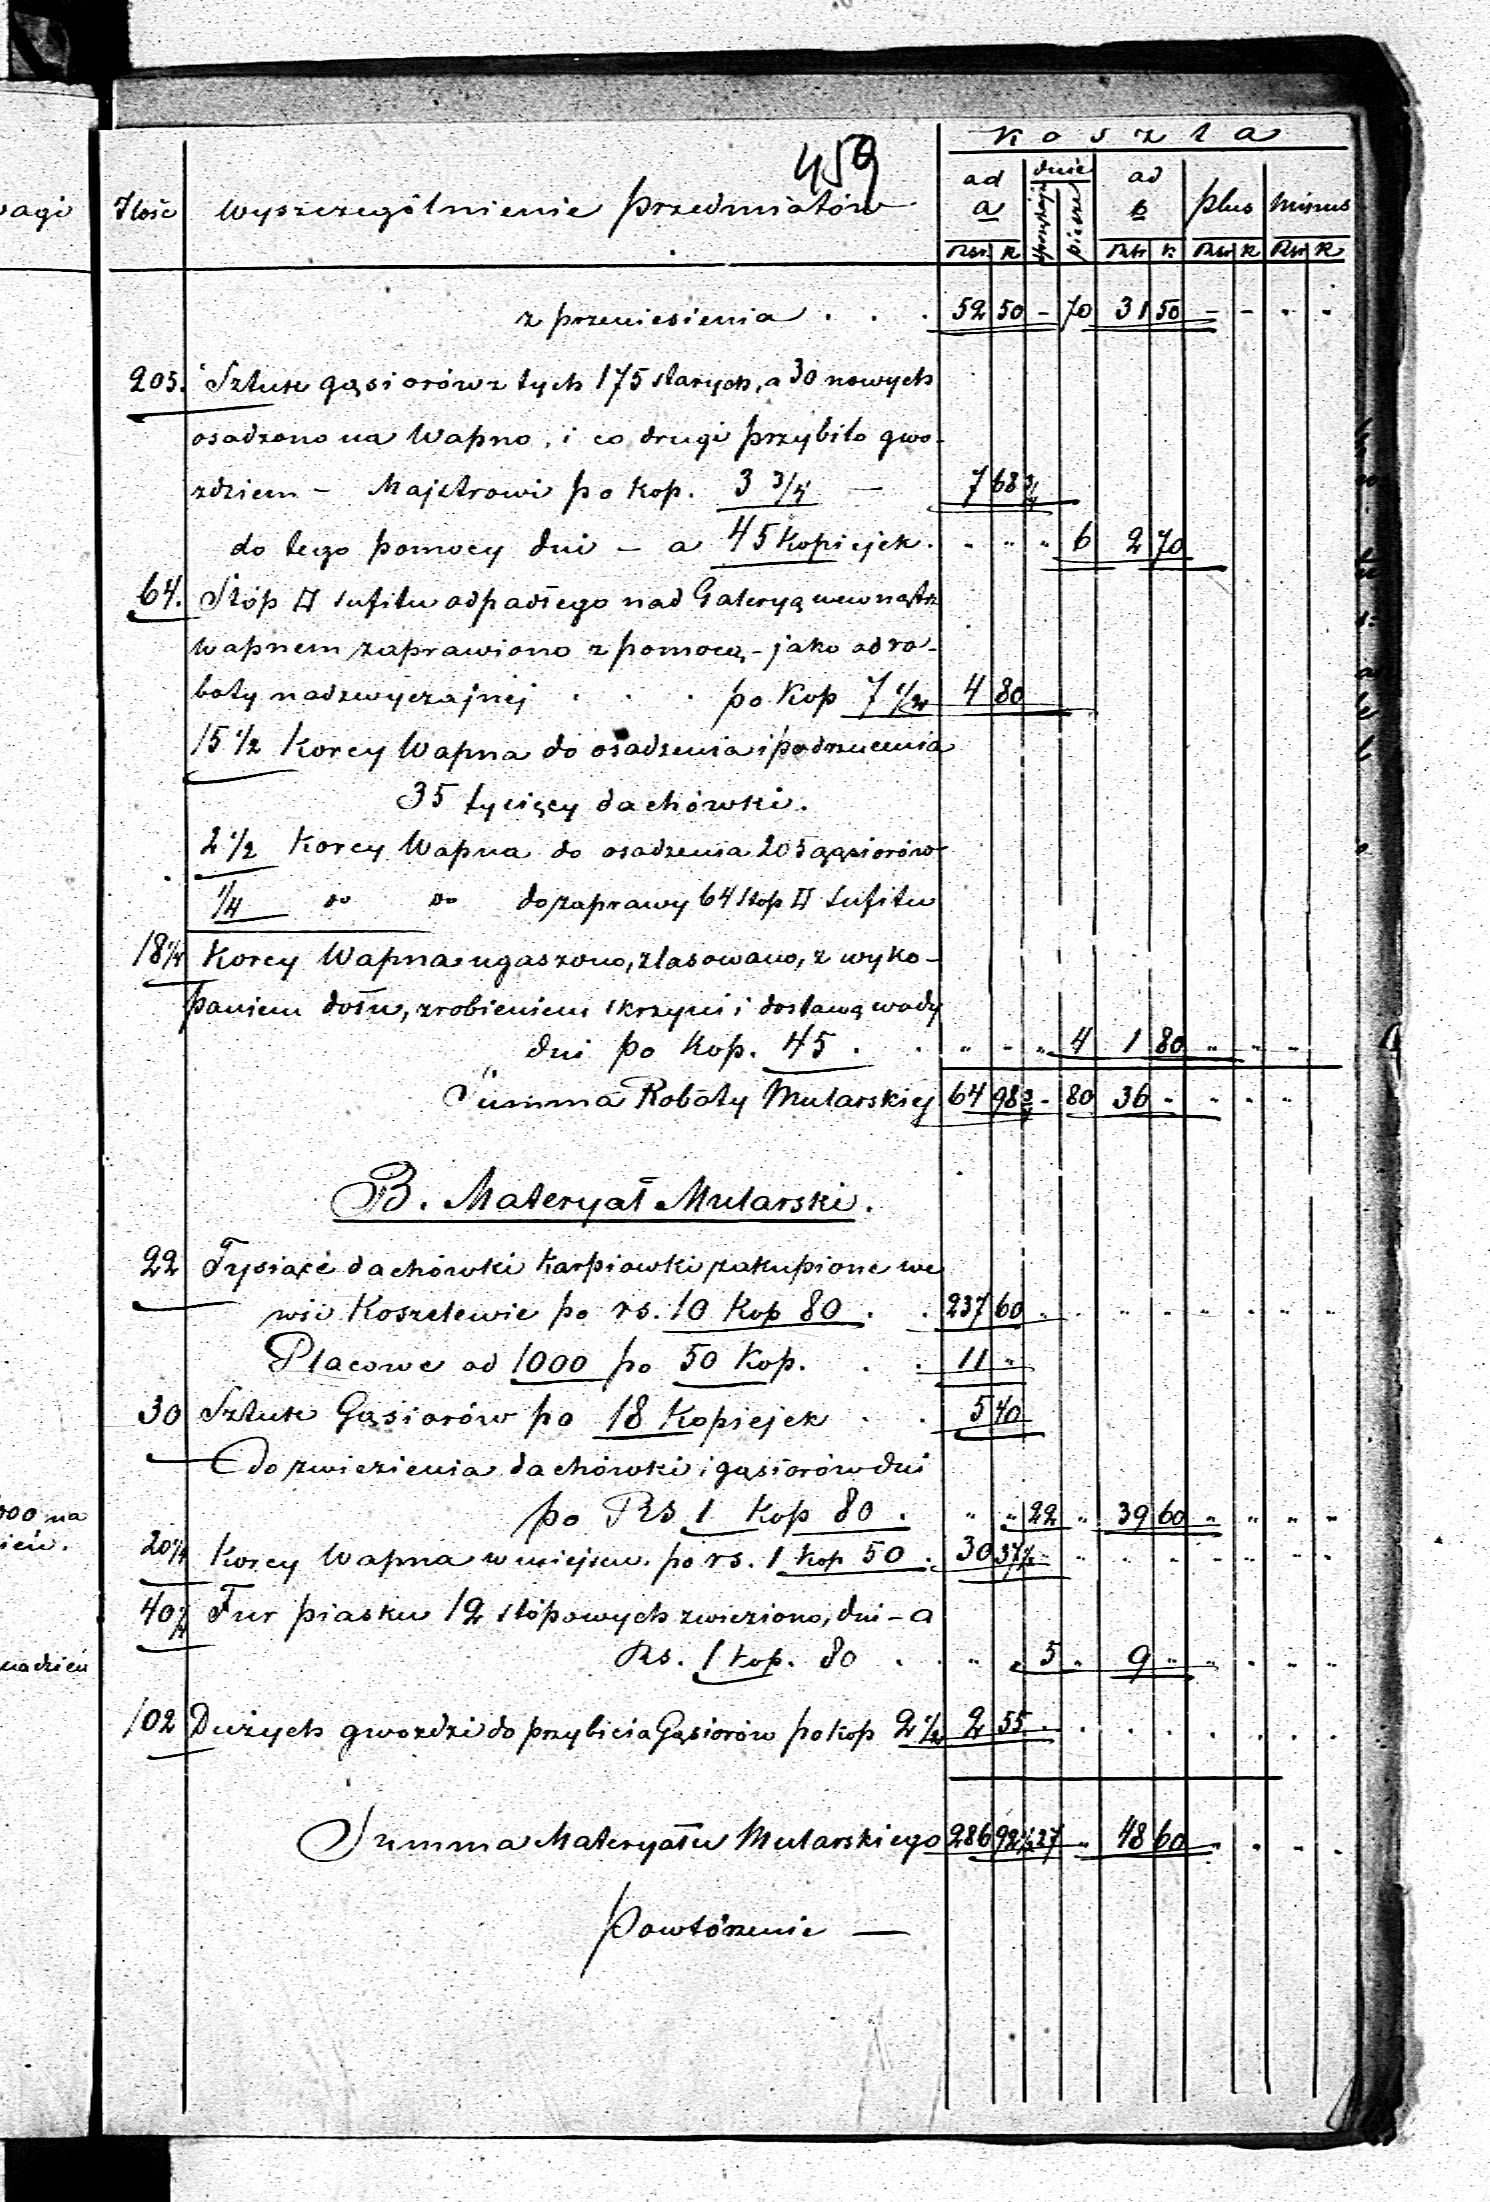 459
Koszta
Ilość wyszczególnienie przedmiotów ad a dnie piesze ad b plus minus
Rsr. K Rsr K Rsr K Rsr K
z przeniesienia . . . 52 50 - 70 31 50 - - - -
205. Sztuk gąsiorów z tych 175 starych, a 30 nowych
osadzono na Wapno, i co drugi przybito gwo-
zdziem - Majstrowi po kop. 3 3/4 — 7 68 3/4
do tego pomocy dni - a 45 Kopiejek. " " " 6 2 70
64. Stóp □ sufitu odpadłego nad Galeryą wewnątrz
wapnem zaprawiono z pomocą - jako od ro-
boty nadzwyczajnej . . . po Kop 7 1/2 4 80
15 1/2 Korcy Wapna do osadzenia i podrzucenia
35 tysięcy dachówki.
2 1/2 Korcy Wapna do osadzenia 205 gąsiorów
1/4 do do do zaprawy 64 stóp □ sufitu
18 1/4 Korcy Wapna ugaszono, zlasowano, z wyko-
paniem dołu, zrobieniem skrzyni i dostawą wody
dni po Kop. 45 . . " " " 4 1 80 " " "
Summa Roboty Mularskiej 64 98 3/4 - 80 36 - " " "
B. Materyał Mularski.
22 Tysiące dachówki Karpiowki zakupione we
wsi Koszelewie po rs. 10 Kop 80 . . 237 60 . . " " " " " "
Placowe od 1000 po 50 Kop. . . 11 "
30 Sztuk Gąsiorów po 18 Kopiejek . . 5 40
Do zwiezienia dachówki i gąsiorów dni
po Rs 1 Kop 80 . " " 22 " 39 60 " " " "
20 1/4 Korcy Wapna w miejscu. po rs. 1 Kop 50 . 30 37 1/2 " " " " " " " "
40 1/4 Fur piasku 12 stópowych zwieziono, dni - a
Rs. 1 kop. 80 . . " " 5 " 9 " " " " "
102 Dużych gwozdzi do przybicia Gąsiorów po kop 2 1/2 2 55 . . . . . . . .
Summa Materyału Mularskiego 286 92 1/2 27 " 48 60 " " " "
Powtórzenie —